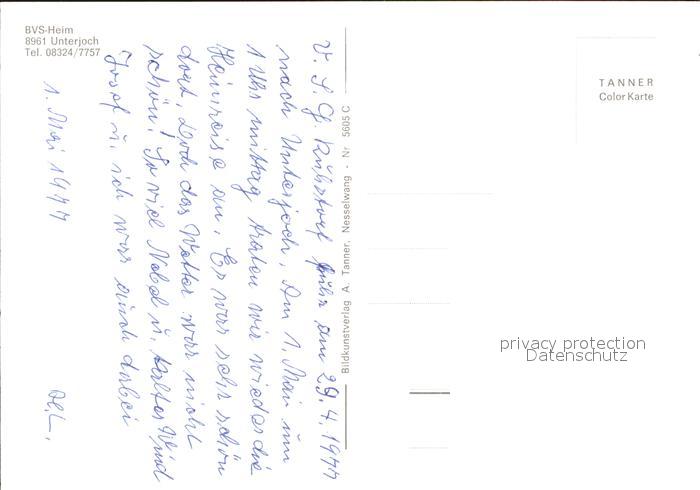 BVS-Heim
8961 Unterjoch
Tel. 08324/7757
V. S. G. fuhr am 29.4.1977
nach Unterjoch. Am 1. Mai um
1 Uhr mittag traten wir wieder die
Heimreise an. Es war sehr schön
dort. Doch das Wetter war nicht
schön! So viel Nebel u. kalter Wind
Josef u. ich war auch dabei
1. Mai 1977
Bildkunstverlag A. Tanner, Nesselwang - Nr 5605 C
TANNER
Color Karte
privacy protection
Datenschutz